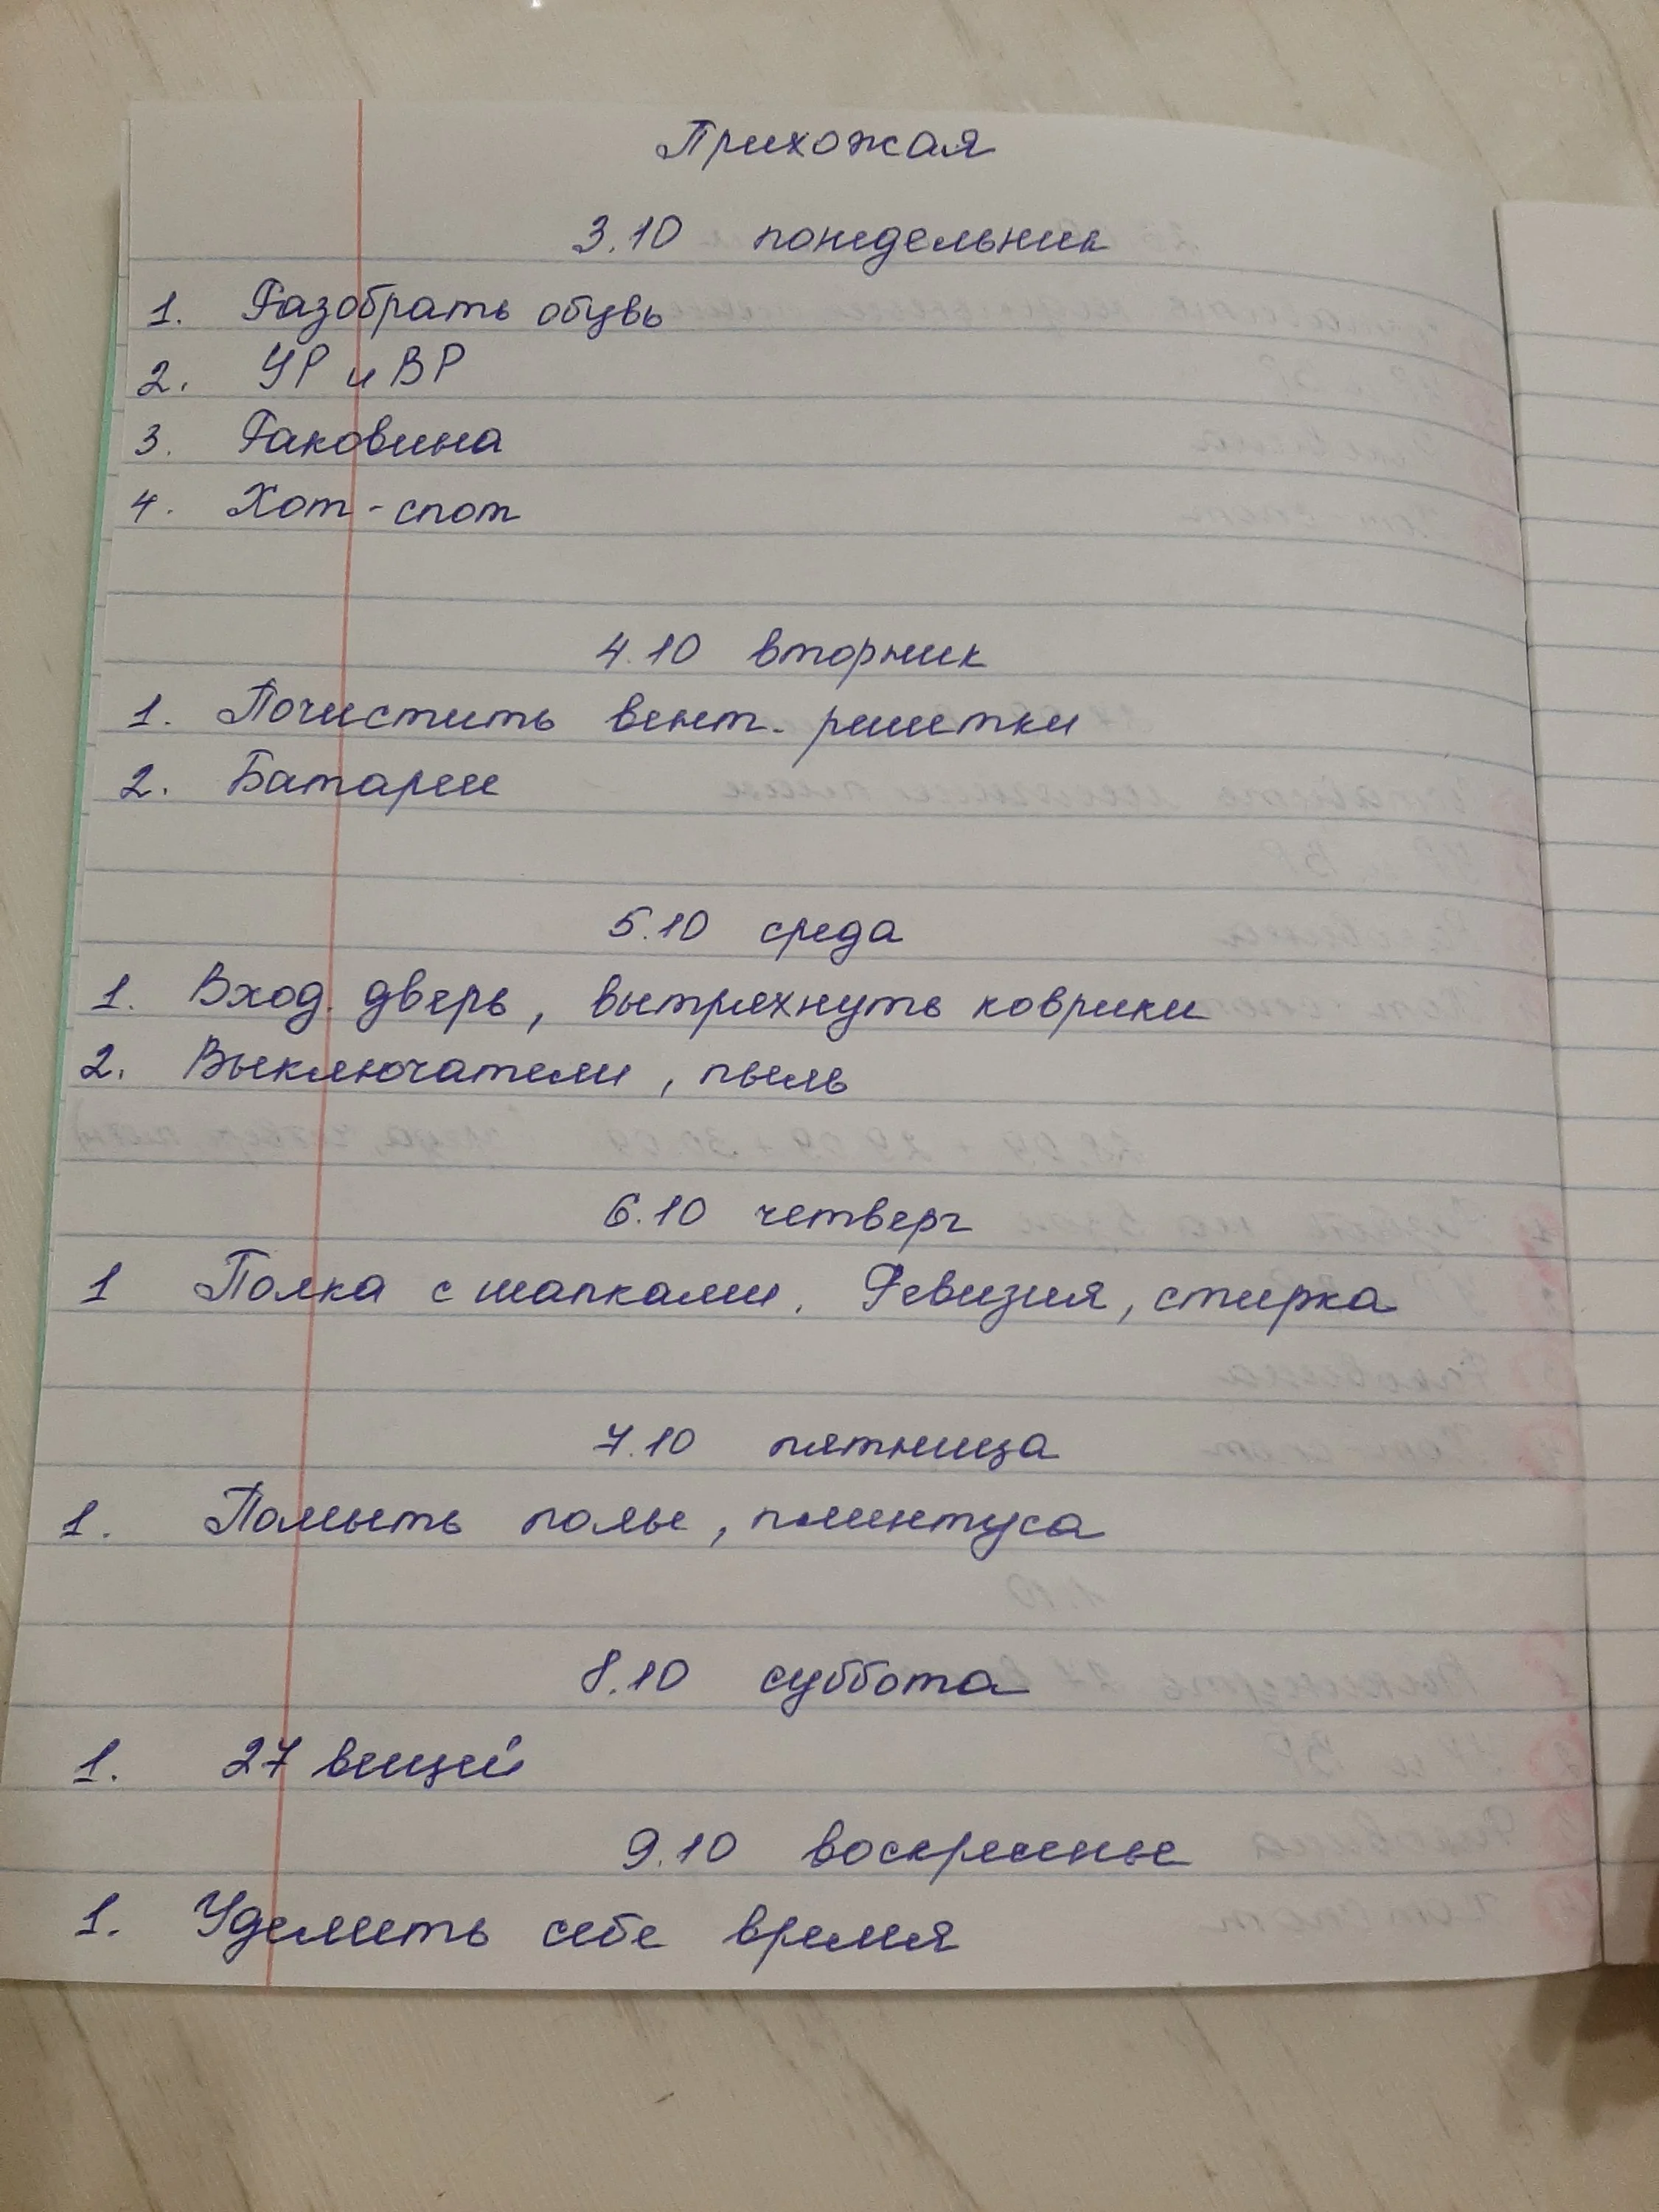 Прихожая
3.10 понедельник
1. Разобрать обувь
2. УР и ВР
3. Раковина
4. Хот-спот
4.10 вторник
1. Почистить вент. решетки
2. Батареи
5.10 среда
1. Вход. дверь, вытряхнуть коврики
2. Выключатели, пыль
6.10 четверг
1 Полка с шапками. Ревизия, стирка
7.10 пятница
1. Помыть полы, плинтуса
8.10 суббота
1. 27 вещей
9.10 воскресенье
1. Уделить себе время